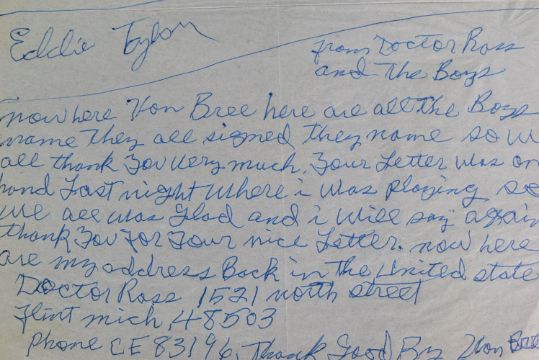 Eddie Taylor
from Doctor Ross
and The Boys
now here Von Bree here are all the Boys
name They all signed they name so w
all thank You Very much. Your Letter was on
hand Last night where i was playing so
we all was Glad and i will say again
thank You For Your nice Letter. now here
are my address Back in the United state
Doctor Ross 1521 north street
Flint mich, 48503
Phone CE 83196, Thank Good By Von Bree